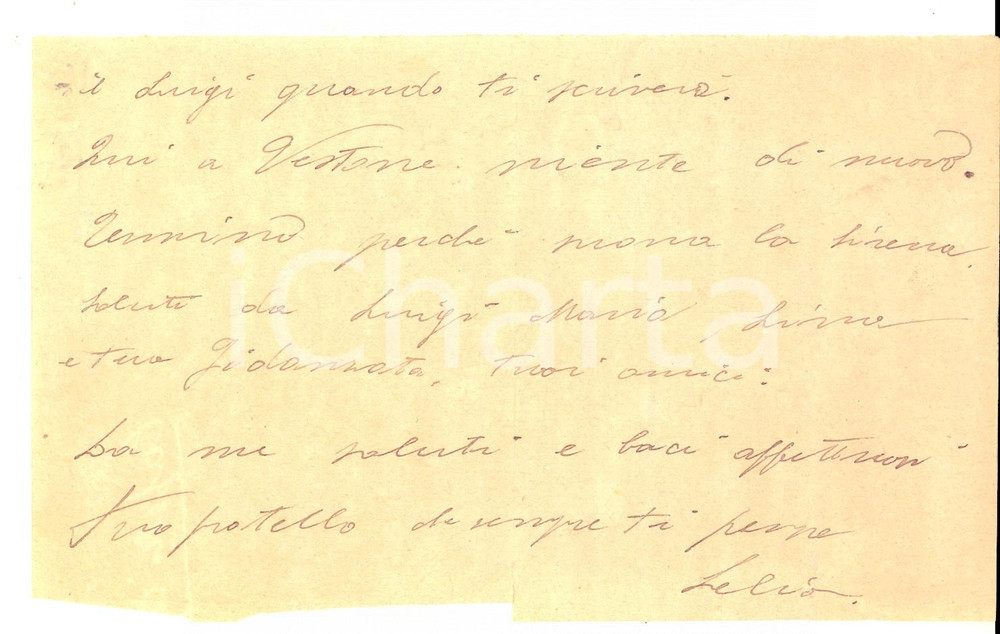 il Luigi quando ti scriverà.
Qui a Vestone niente di nuovo.
Termino perché suona la sirena.
Saluti da Luigi Mario
e tua Fidanzata, tuoi amici.
Da me saluti e baci affettuosi
Tuo fratello che sempre ti pensa
Lelio.
iCharta